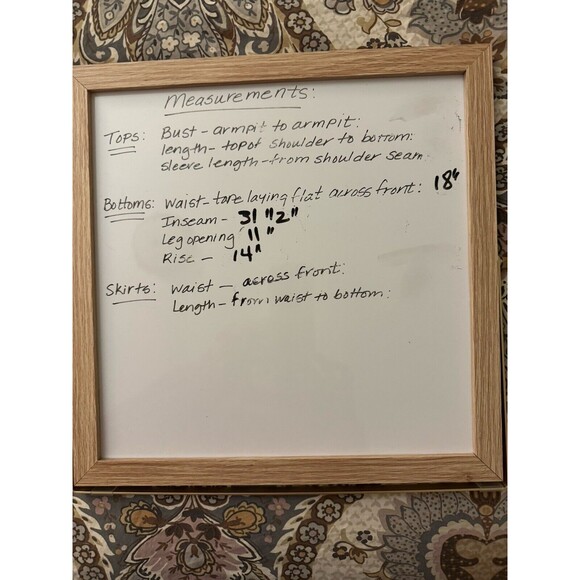 Measurements:
Tops: Bust - armpit to armpit:
length - top of shoulder to bottom:
sleeve length - from shoulder seam.
Bottoms: Waist - tape laying flat across front: 18"
Inseam - 31 "2"
Leg opening 11"
Rise - 14"
Skirts: Waist - across front:
Length - from waist to bottom: